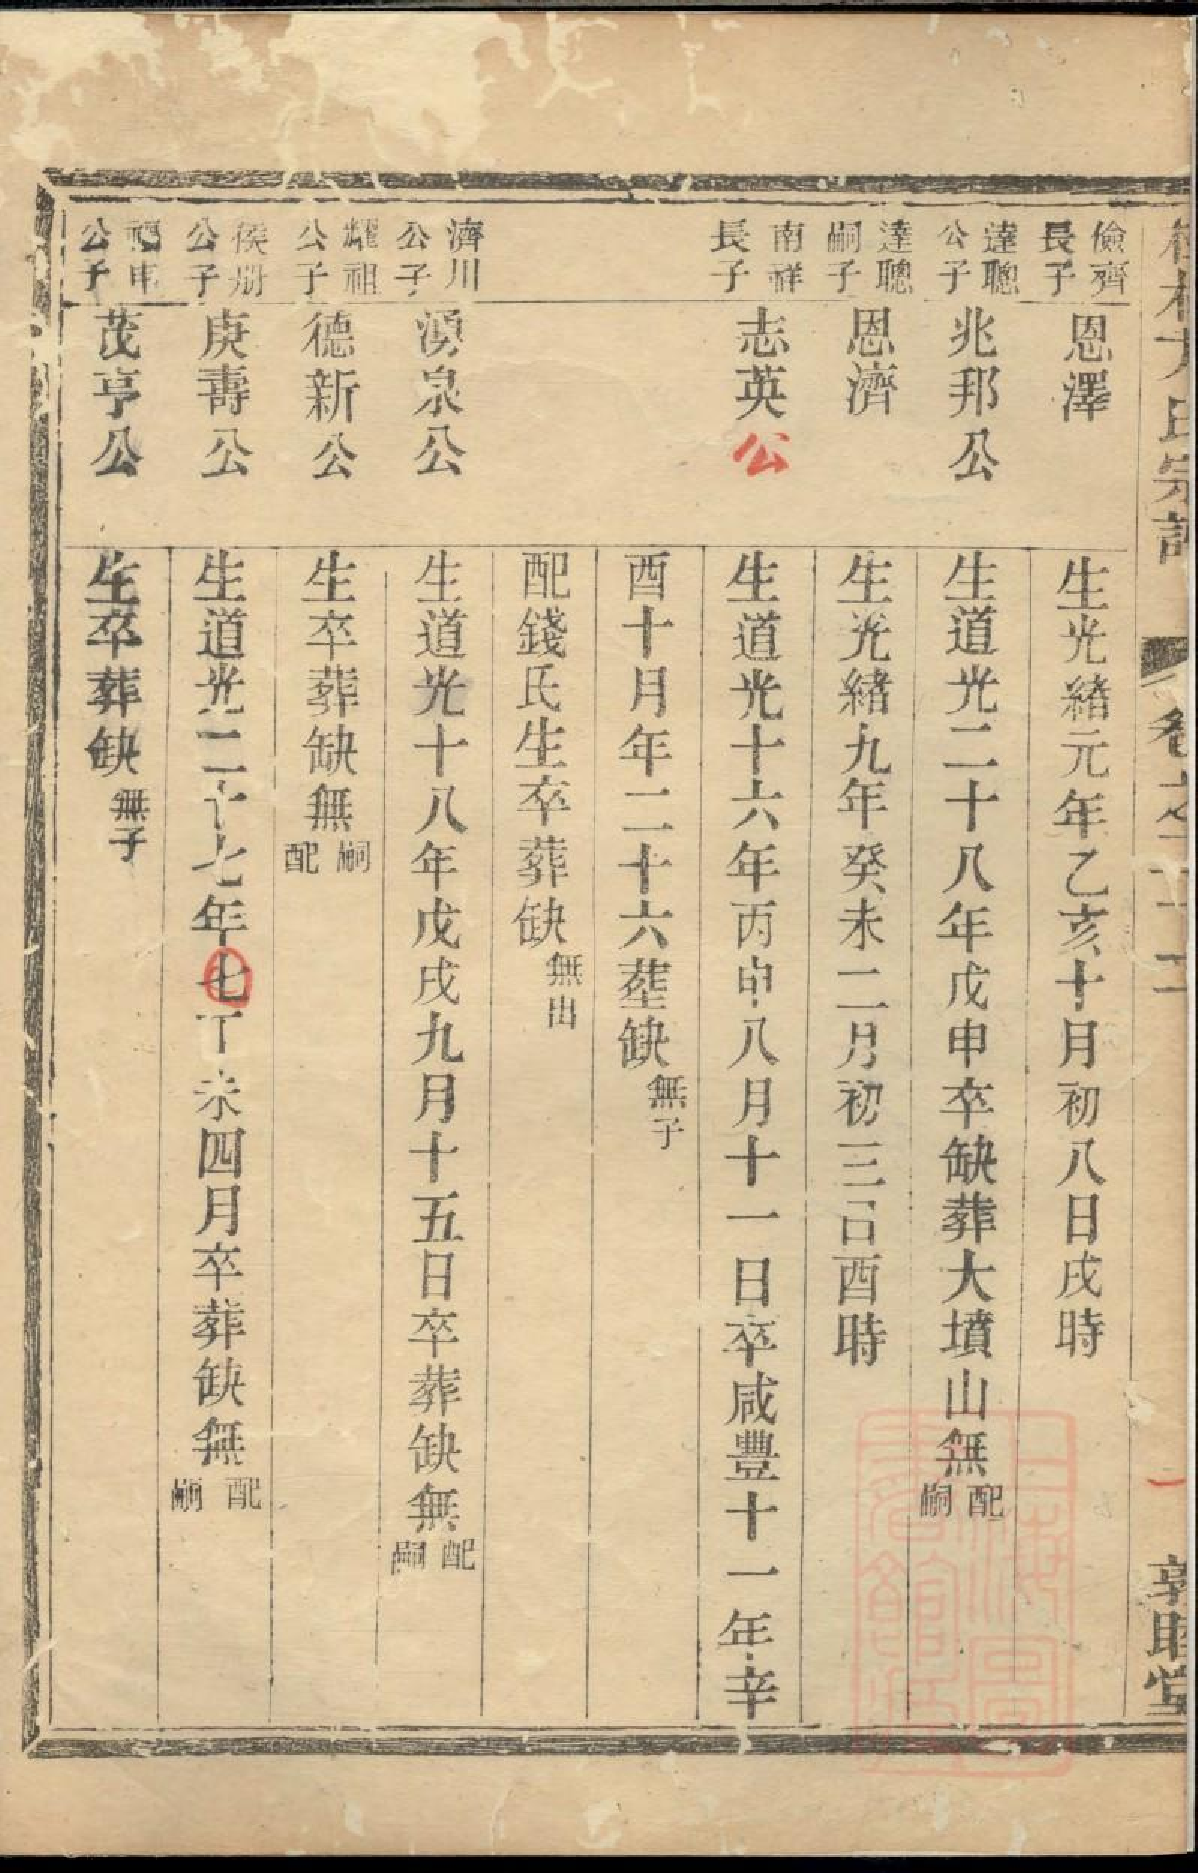 氏宗譜
卷之十二
敦睦堂
儉齊長子
恩澤
生光緒元年乙亥十月初八日戌時
達聰公子
兆邦公
生道光二十八年戊申卒缺葬大墳山無配嗣
達聰嗣子
恩濟
生光緒九年癸未二月初三日酉時
南祥長子
志英公
生道光十六年丙申八月十一日卒咸豐十一年辛
酉十月年二十六塟缺無子
配錢氏生卒葬缺無出
濟川公子
湧泉公
生道光十八年戊戌九月十五日卒葬缺無配嗣
耀祖公子
德新公
生卒葬缺無嗣配
侯册公子
庚壽公
生道光二十七年七丁未四月卒葬缺無配嗣
公子
茂亨公
生卒葬缺無子